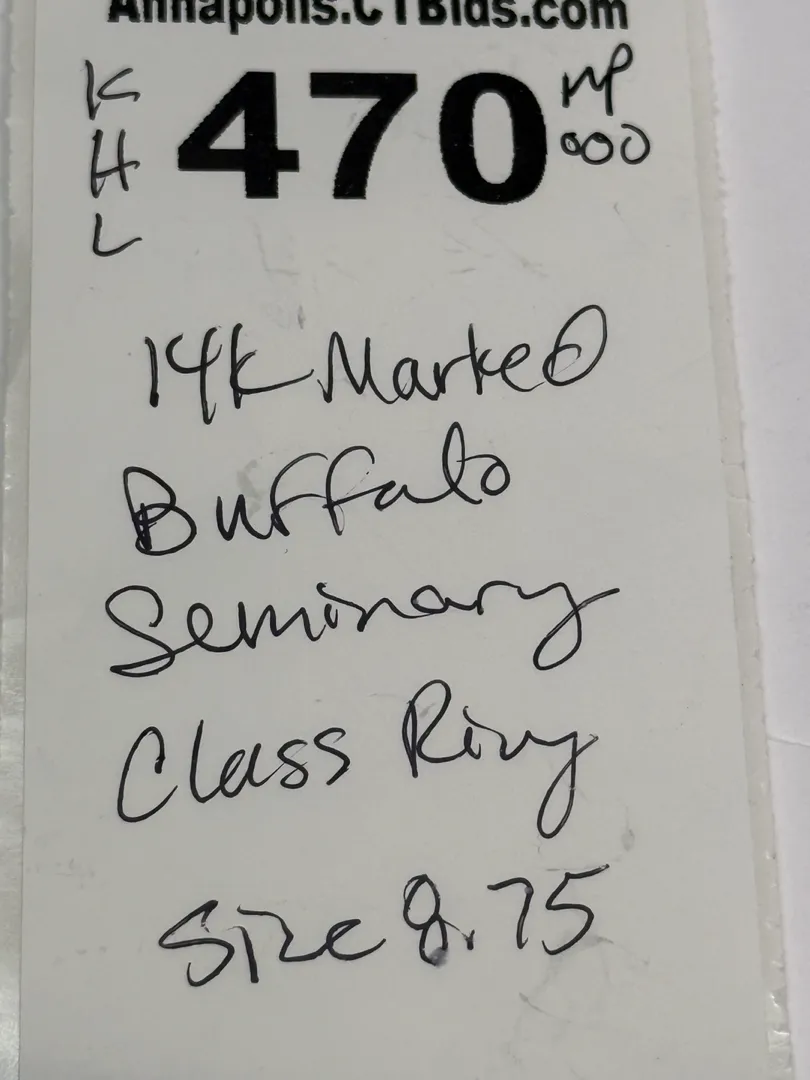 Annapolis.CTBids.com
K
H
L
470
MP
000
14k Marked
Buffalo
Seminary
Class Ring
Size 8.75